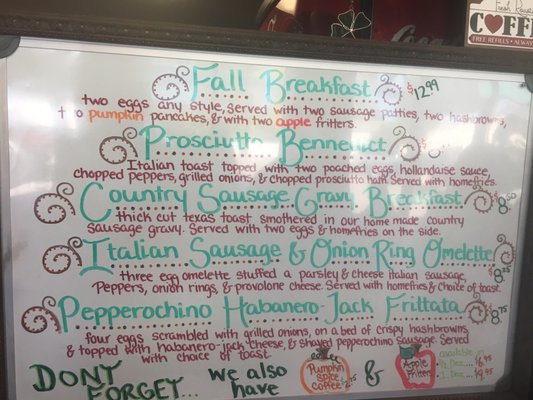 Fresh Roasted
COFFEE
FREE REFILLS • ALWAYS
Coca
Fall Breakfast $12.99
two eggs any style, served with two sausage patties, two hashbrowns,
two pumpkin pancakes, & with two apple fritters.
Prosciutto Bennedict
Italian toast topped with two poached eggs, hollandaise sauce,
chopped peppers, grilled onions, & chopped prosciutto ham. Served with homefries.
Country Sausage Gravy Breakfast $8.50
thick cut texas toast smothered in our home made country
sausage gravy. Served with two eggs & homefries on the side.
Italian Sausage & Onion Ring Omelette $8.25
three egg omelette stuffed a parsley & cheese italian sausage,
Peppers, onion rings, & provolone cheese. Served with homefries & choice of toast.
Pepperochino Habanero Jack Frittata $8.75
four eggs scrambled with grilled onions, on a bed of crispy hashbrowns
& topped with habanero jack cheese, & shaved pepperochino sausage. Served
with choice of toast.
DONT
FORGET...
we also
have
Pumpkin
Spice
Coffee!
&
Apple
Fritters
available
½ Doz...
1 Doz...